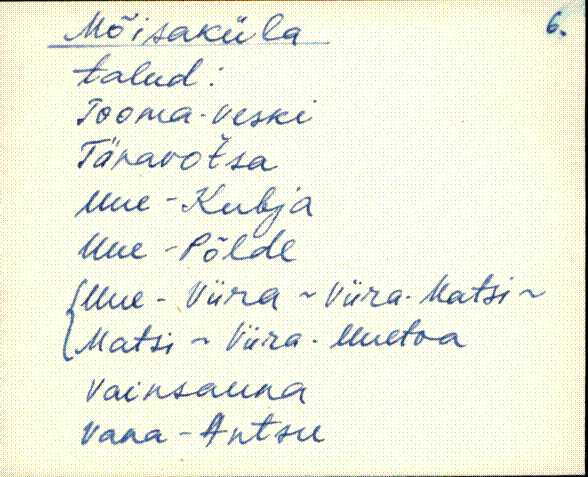 6.
Mõisaküla
talud:
Tooma-Veski
Tänavotsa
Uue-Kubja
Uue-Põlde
Uue-Viira ~ Viira-Matsi ~
Matsi ~ Viira-Uuetoa
Vainsauna
Vana-Antsu